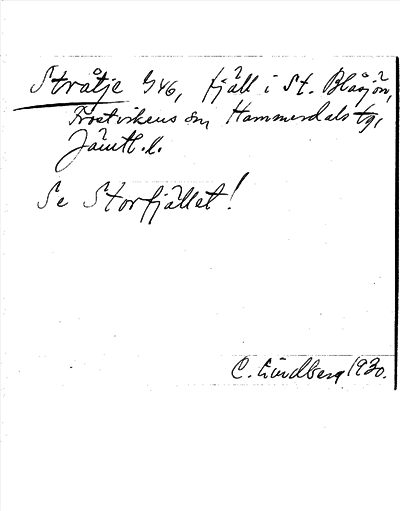 Stråtje 546, fjäll i St. Blåsjön,
Frostvikens sn, Hammerdals tg,
Jämtl. l.
Se Storfjället!
C. Lindberg 1930.